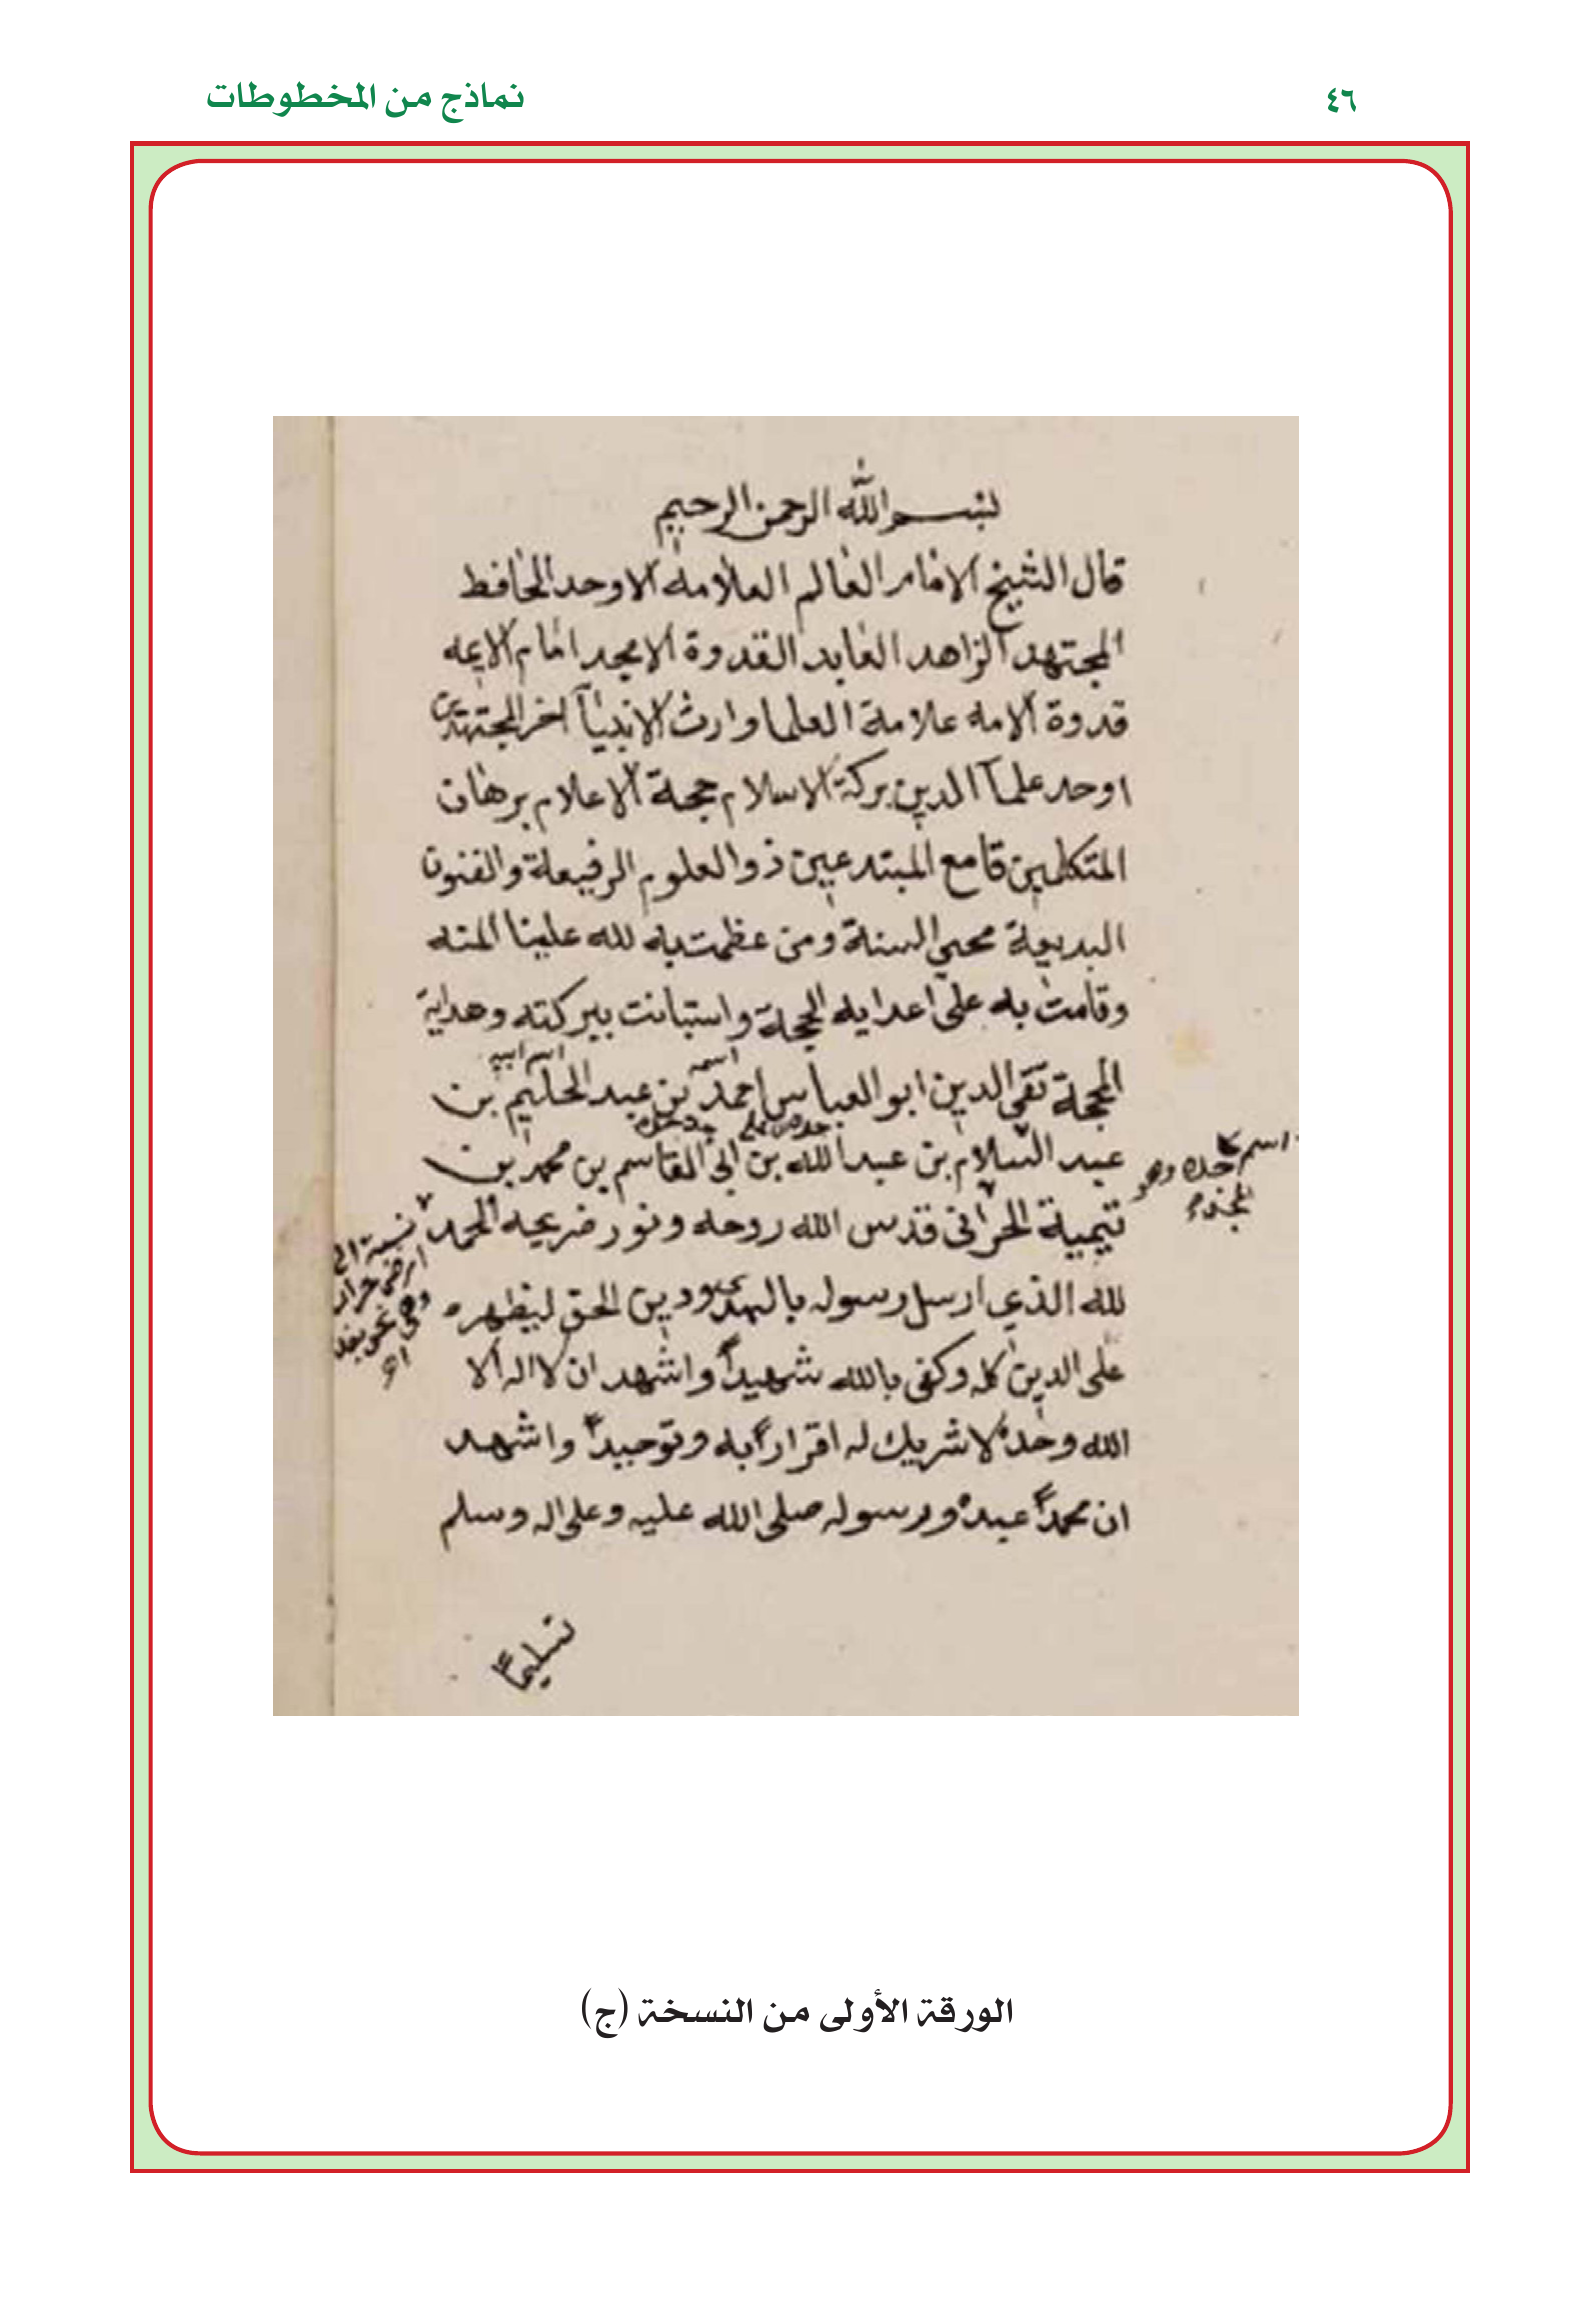 ٤٦
نماذج من المخطوطات
بسم الله الرحمن الرحيم
قال الشيخ الامام العالم العلامه الاوحد الحافظ
المجتهد الزاهد العابد القدوة الامجد امام الايمه
قدوة الامه علامة العلما وارث الانبيآ اخر المجتهدين
اوحد علمآ الدين بركة الاسلام حجة الاعلام برهان
المتكلمين قامع المبتدعين ذو العلوم الرفيعة والفنون
البديعة محيي السنة ومن عظمت به لله علينا المنه
وقامت به على اعدايه الحجة واستبانت ببركته وهداية
المحجة تقي الدين ابو العباس احمد بن عبد الحليم بن
اسمه
اسم ابيه
عبد السلام بن عبد الله بن ابي القاسم بن محمد بن
اسم جده وهو
المجد
تيمية الحراني قدس الله روحه ونور ضريحه الحمد
نسبة الى
ارض حران
وهي
لله الذي ارسل رسوله بالهدى ودين الحق ليظهره
على الدين كله وكفى بالله شهيداً واشهد ان لا اله الا
الله وحده لا شريك له اقراراً به وتوحيداً واشهد
ان محمداً عبده ورسوله صلى الله عليه وعلى اله وسلم
تسليماً
الورقة الأولى من النسخة (ج)